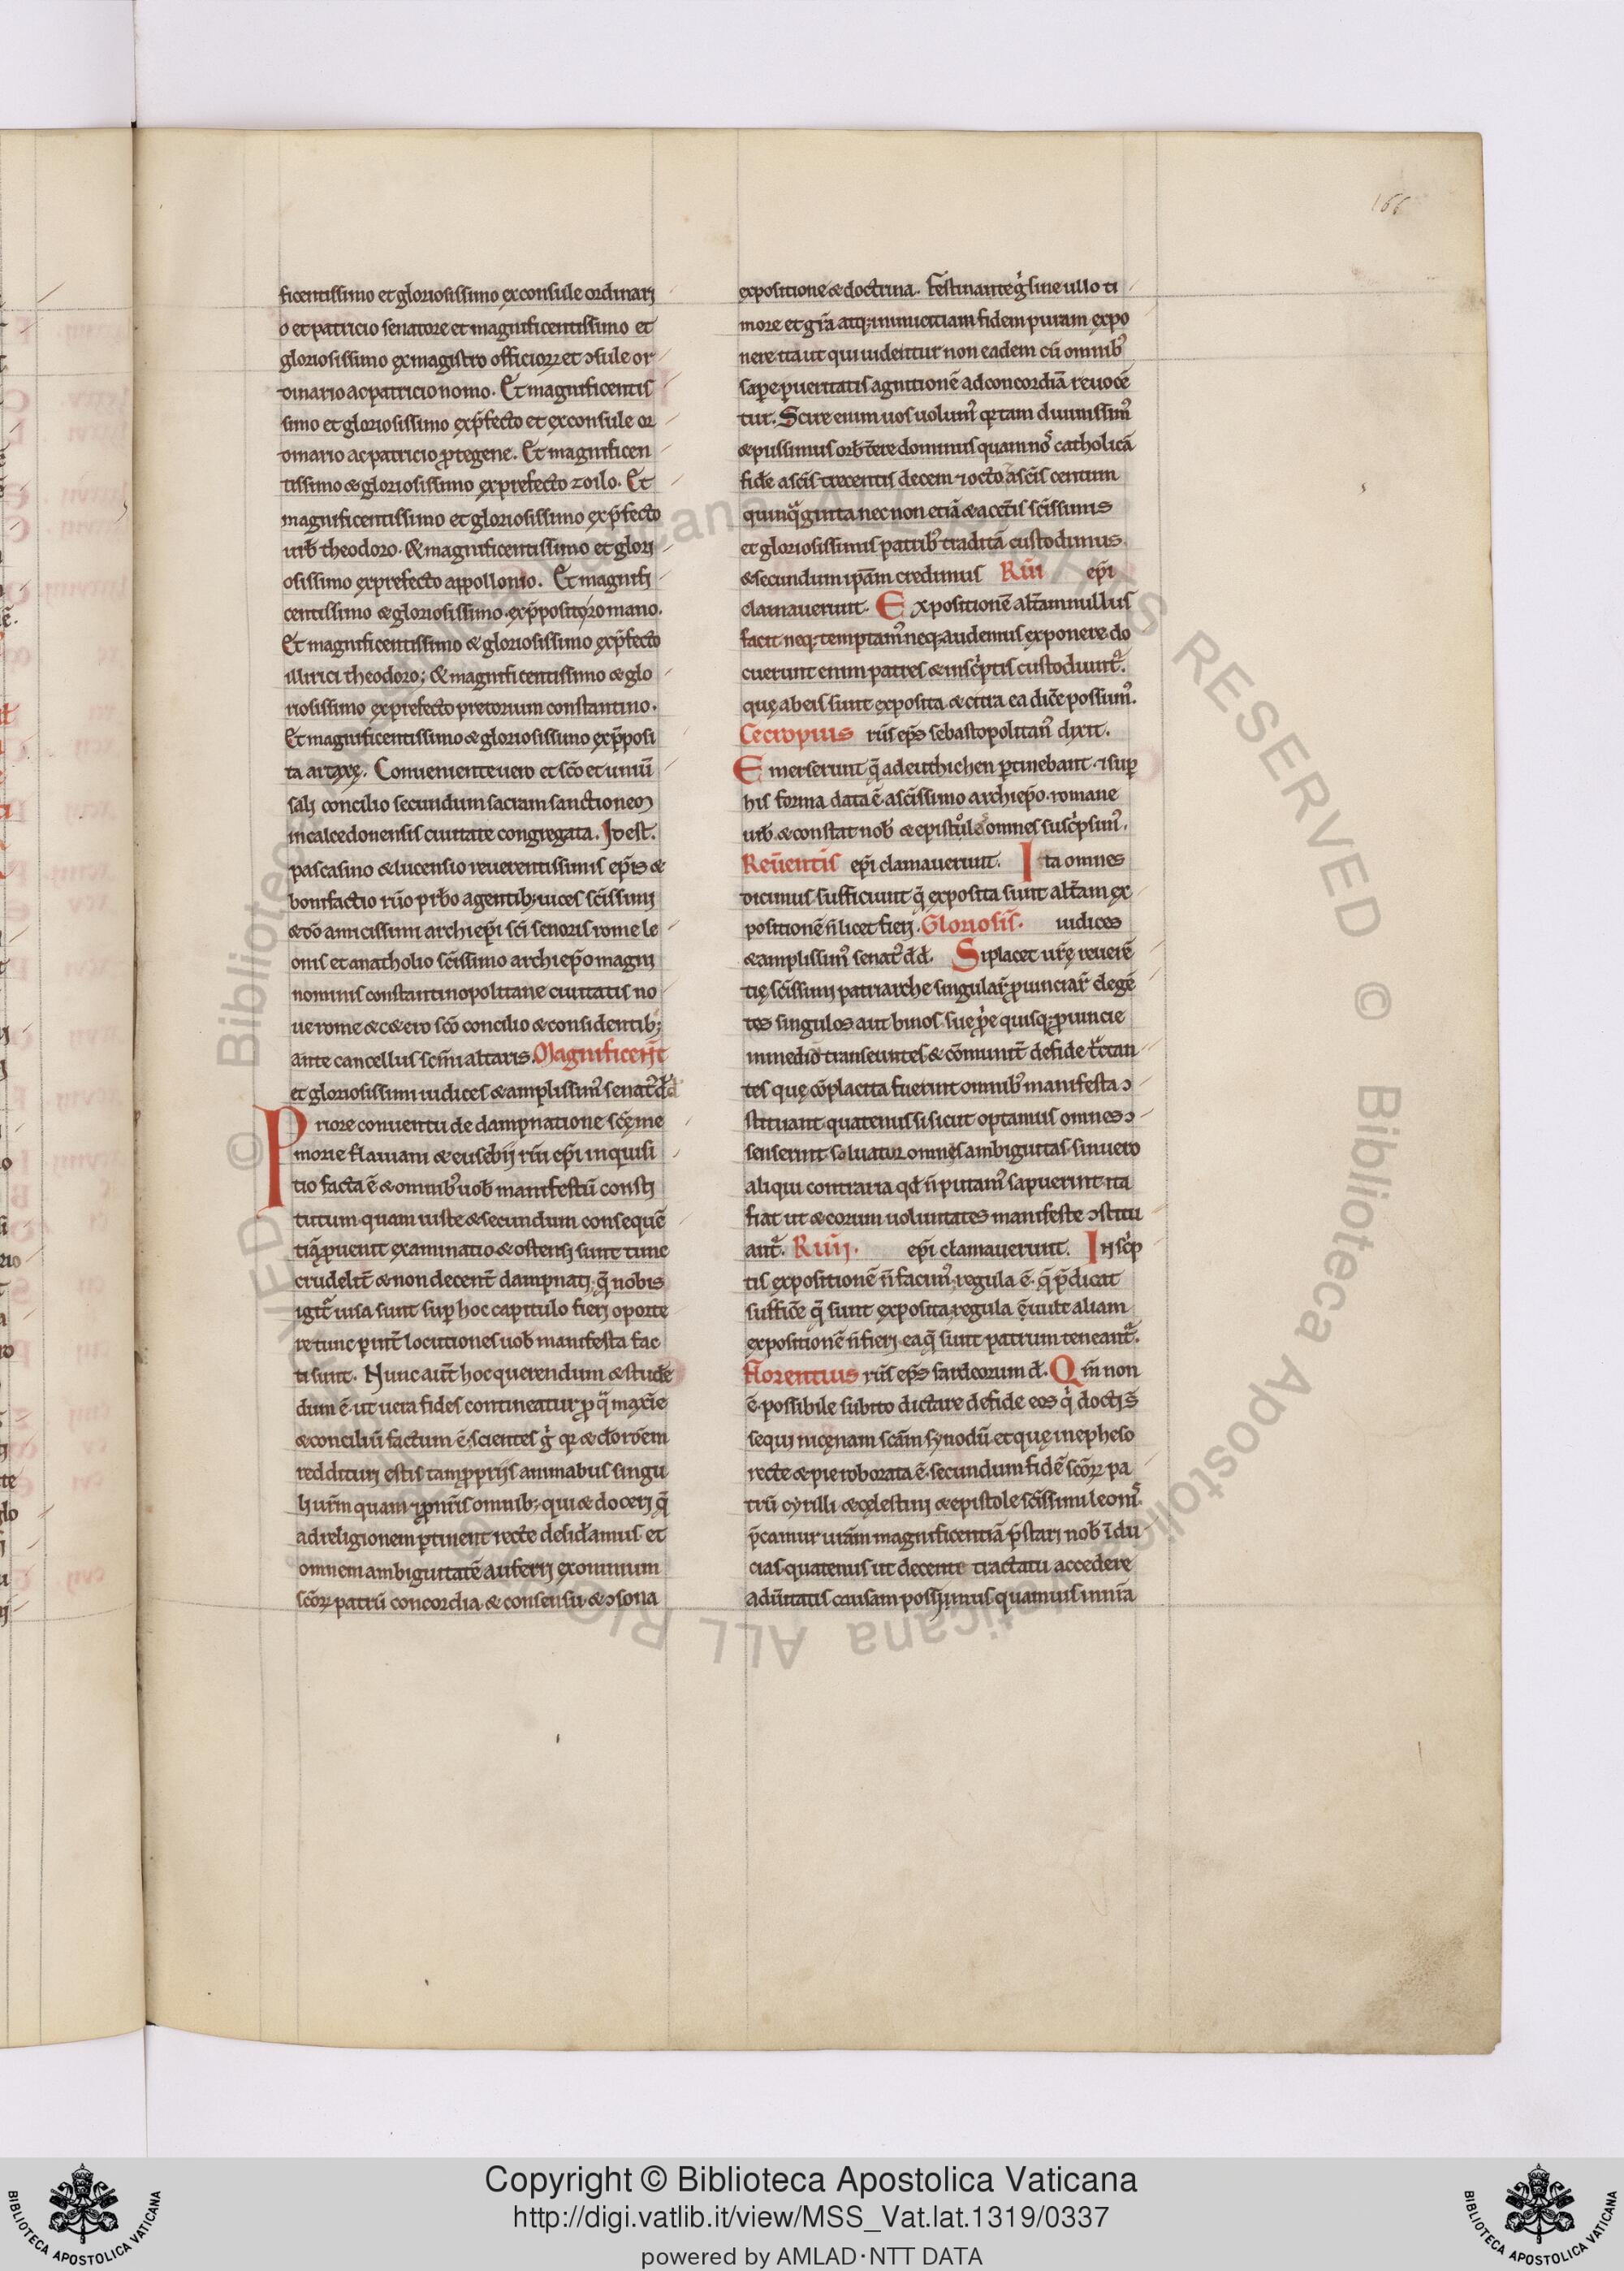 166
ficentissimo et gloriosissimo exconsule ordinarj
o et patricio senatore et magnificentissimo et
gloriosissimo exmagistro officioꝝ et ↄsule or
dinario ac patricio nomo. Et magnificentis
simo et gloriosissimo exp̄fecto et exconsule or
dinario ac patricio ꝓtegene. Et magnificen
tissimo & gloriosissimo exprefecto zoilo. Et
magnificentissimo et gloriosissimo exp̄fecto
urib̄ theodoro. & magnificentissimo et glori
osissimo exprefecto appollonio. Et magnifi
centissimo & gloriosissimo exp̄posito romano.
Et magnificentissimo & gloriosissimo exp̄fecto
illirici theodoro; & magnificentissimo & glo
riosissimo exprefecto pretorium constantino.
Et magnificentissimo & gloriosissimo exp̄posi
ta artaxe. Conueniente uero et sc̄o et uniū
salj concilio secundum sacram sanctioneꝫ
in calcedonensis ciuitate congregata. Id est.
pascasino & lucensio reuerentissimis ep̄is &
bonifactio rūo pr̄bo agentibꝫ uices sc̄issimi
& dō amicissimi archiep̄i sc̄i senoris rome le
onis et anatholio sc̄issimo archiep̄o magni
nominis constantinopolitane ciuitatis no
ue rome & c&ero sc̄o concilio & considentibꝫ
ante cancellus sc̄m̄ altaris. Magnificen̄t
et gloriosissimi iudices & amplissim᷒ senat᷒ d̄d̄
Priore conuentu de dampnatione sc̄ę me
morie flauiani & eusebij rūi ep̄i inquisi
tio facta ē & omnib᷒ uob̄ manifestū consti
tutum quam iuste & secundum consequē
tiā ꝓuenit examinatio & ostensi sunt tunc
crudelit̄ & non decent̄ dampnatj. q̄ nobis
igit᷑ uisa sunt suꝑ hoc capitulo fierj oporte
re tunc ꝑ int̄locutiones uob̄ manifesta fac
ti sunt. Nunc aut̄ hoc querendum & stude
dum ē. ut uera fides contineatur ꝓ q̄ maxīe
& conciliū factum ē. scientes g̊ qꝛ & d̄o rōem
reddituri estis tam ꝓ prijs animabus singu
li ur̄m quam ꝓ nr̄is omnibꝫ. qui & docerj q̄
ad religionem ꝑtinent recte desid̄amus et
omnem ambiguitatē auferij exomnium
sc̄oꝝ patrū concordia & consensu & ↄsona
expositione & doctrina. Festinante g̊ sine ullo ti
more et gr̄a atqꝫ inimicitiam fidem puram expo
nere ita ut qui uidentur non eadem cū omnib᷒
saꝑe ꝑ ueritatis agnitionē ad concordiā reuocē
tur. Scire enim uos uolum᷒ qꝛ tam diuinissim᷒
& piissimus orb̄ t̄re dominus quam nos catholicā
fidē a sc̄is trecentis decem ⁊ octo a sc̄is centum
quinq̄ginta nec non etiā & a cet̄is sc̄issimis
et gloriosissimis patrib᷒ traditā custodimus
& secundum ip̄am credimus Rūi ep̄i
clamauerunt. Expositionē alt̄am nullus
facit neqꝫ temptam᷒ neqꝫ audemus exponere do
cuerunt enim patres & in sc̄ptis custodiunt᷑.
quę ab eis sunt exposita & citra ea dicē possum᷒.
Cecropius rūs ep̄s sebastopolitan᷒ dixit.
Emerserunt q̄ ad euthichen ꝑtinebant. ⁊ suꝑ
his forma data ē a sc̄issimo archiep̄o romane
urb̄. & constat nob̄ & epistole omnes susc̄psim᷒.
Reūentis̄ ep̄i clamauerunt. Ita omnes
dicimus sufficiunt q̄ exposita sunt alt̄am ex
positionē n̄ licet fierj. Gloriosis̄. iudices
& amplissim᷒ senat᷒ d̄d̄. Si placet ur̄ę reuerē
tię sc̄issimi patriarche singular̄ ꝓuinciar̄ degē
tes singulos aut binos sue p̄e quisqꝫ ꝓuincie
in medio transeuntes & cōmunit̄ de fide t̄ctan
tes quę cōplacita fuerint omnib᷒ manifesta ↄ
stituant. quatenus si sicut optamus omnes ↄ
senserint soluatur omnes ambiguitas. sin uero
aliqui contraria qd̄ n̄ putam᷒ sapuerint. ita
fiat ut & eorum uoluntates manifeste ↄstitu
ant᷑. Rūij. ep̄i clamauerunt. In sc̄p
tis expositionē n̄ facim᷒. regula ē. q̄ p̄dicat
sufficē q̄ sunt exposita. regula ē iubet aliam
expositionē n̄ fierj. ea q̄ sunt patrum teneant᷑.
Florentius rūs ep̄s sardeorum d̄. Qm̄ non
ē possibile subito dictare de fide eos q̇ doctj s̄
sequi nicęnam sc̄am synodū. et quę in epheso
recte & pie roborata ē. secundum fidē sc̄oꝝ pa
trū cyrilli & cęlestini & epistole sc̄issimi leonis
p̄camur uram̄ magnificentiā p̄starj nob̄ īdu
cias. quatenus ut decente tractatu accedere
ad ūitatis causam possimus quamuis in nīa
Copyright © Biblioteca Apostolica Vaticana
http://digi.vatlib.it/view/MSS_Vat.lat.1319/0337
powered by AMLAD·NTT DATA
BIBLIOTECA APOSTOLICA VATICANA
BIBLIOTECA APOSTOLICA VATICANA
© Biblioteca Apostolica Vaticana ALL RIGHTS RESERVED